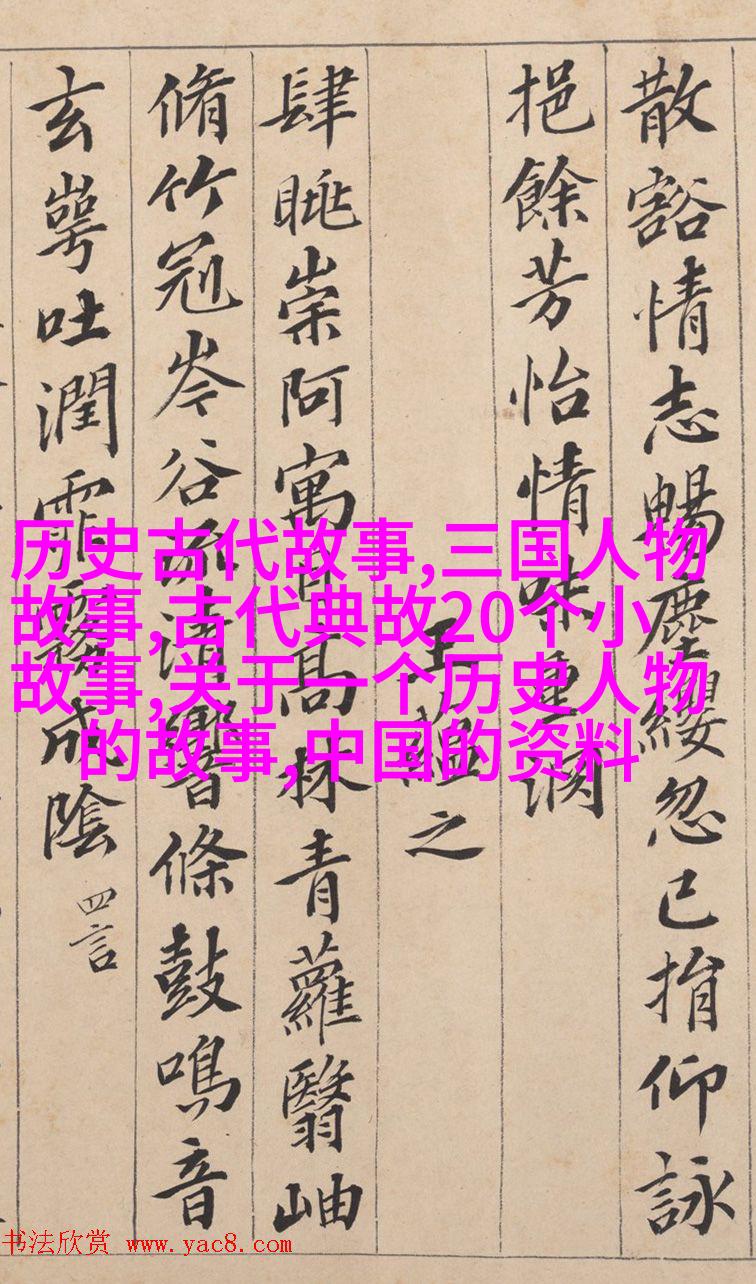 散豁情志暢塵纓忽已捐仰詠
挹餘芳怡情味重淵
王蘊之
肆眺崇阿寓目高林青蘿翳岫
脩竹冠岑谷流清響條鼓鳴音
玄崿吐潤霏霧成陰
四言
历史古代故事,三国人物
故事,古代典故20个小
故事,关于一个历史人物
的故事,中国的资料
书法欣赏 www.yac8.com